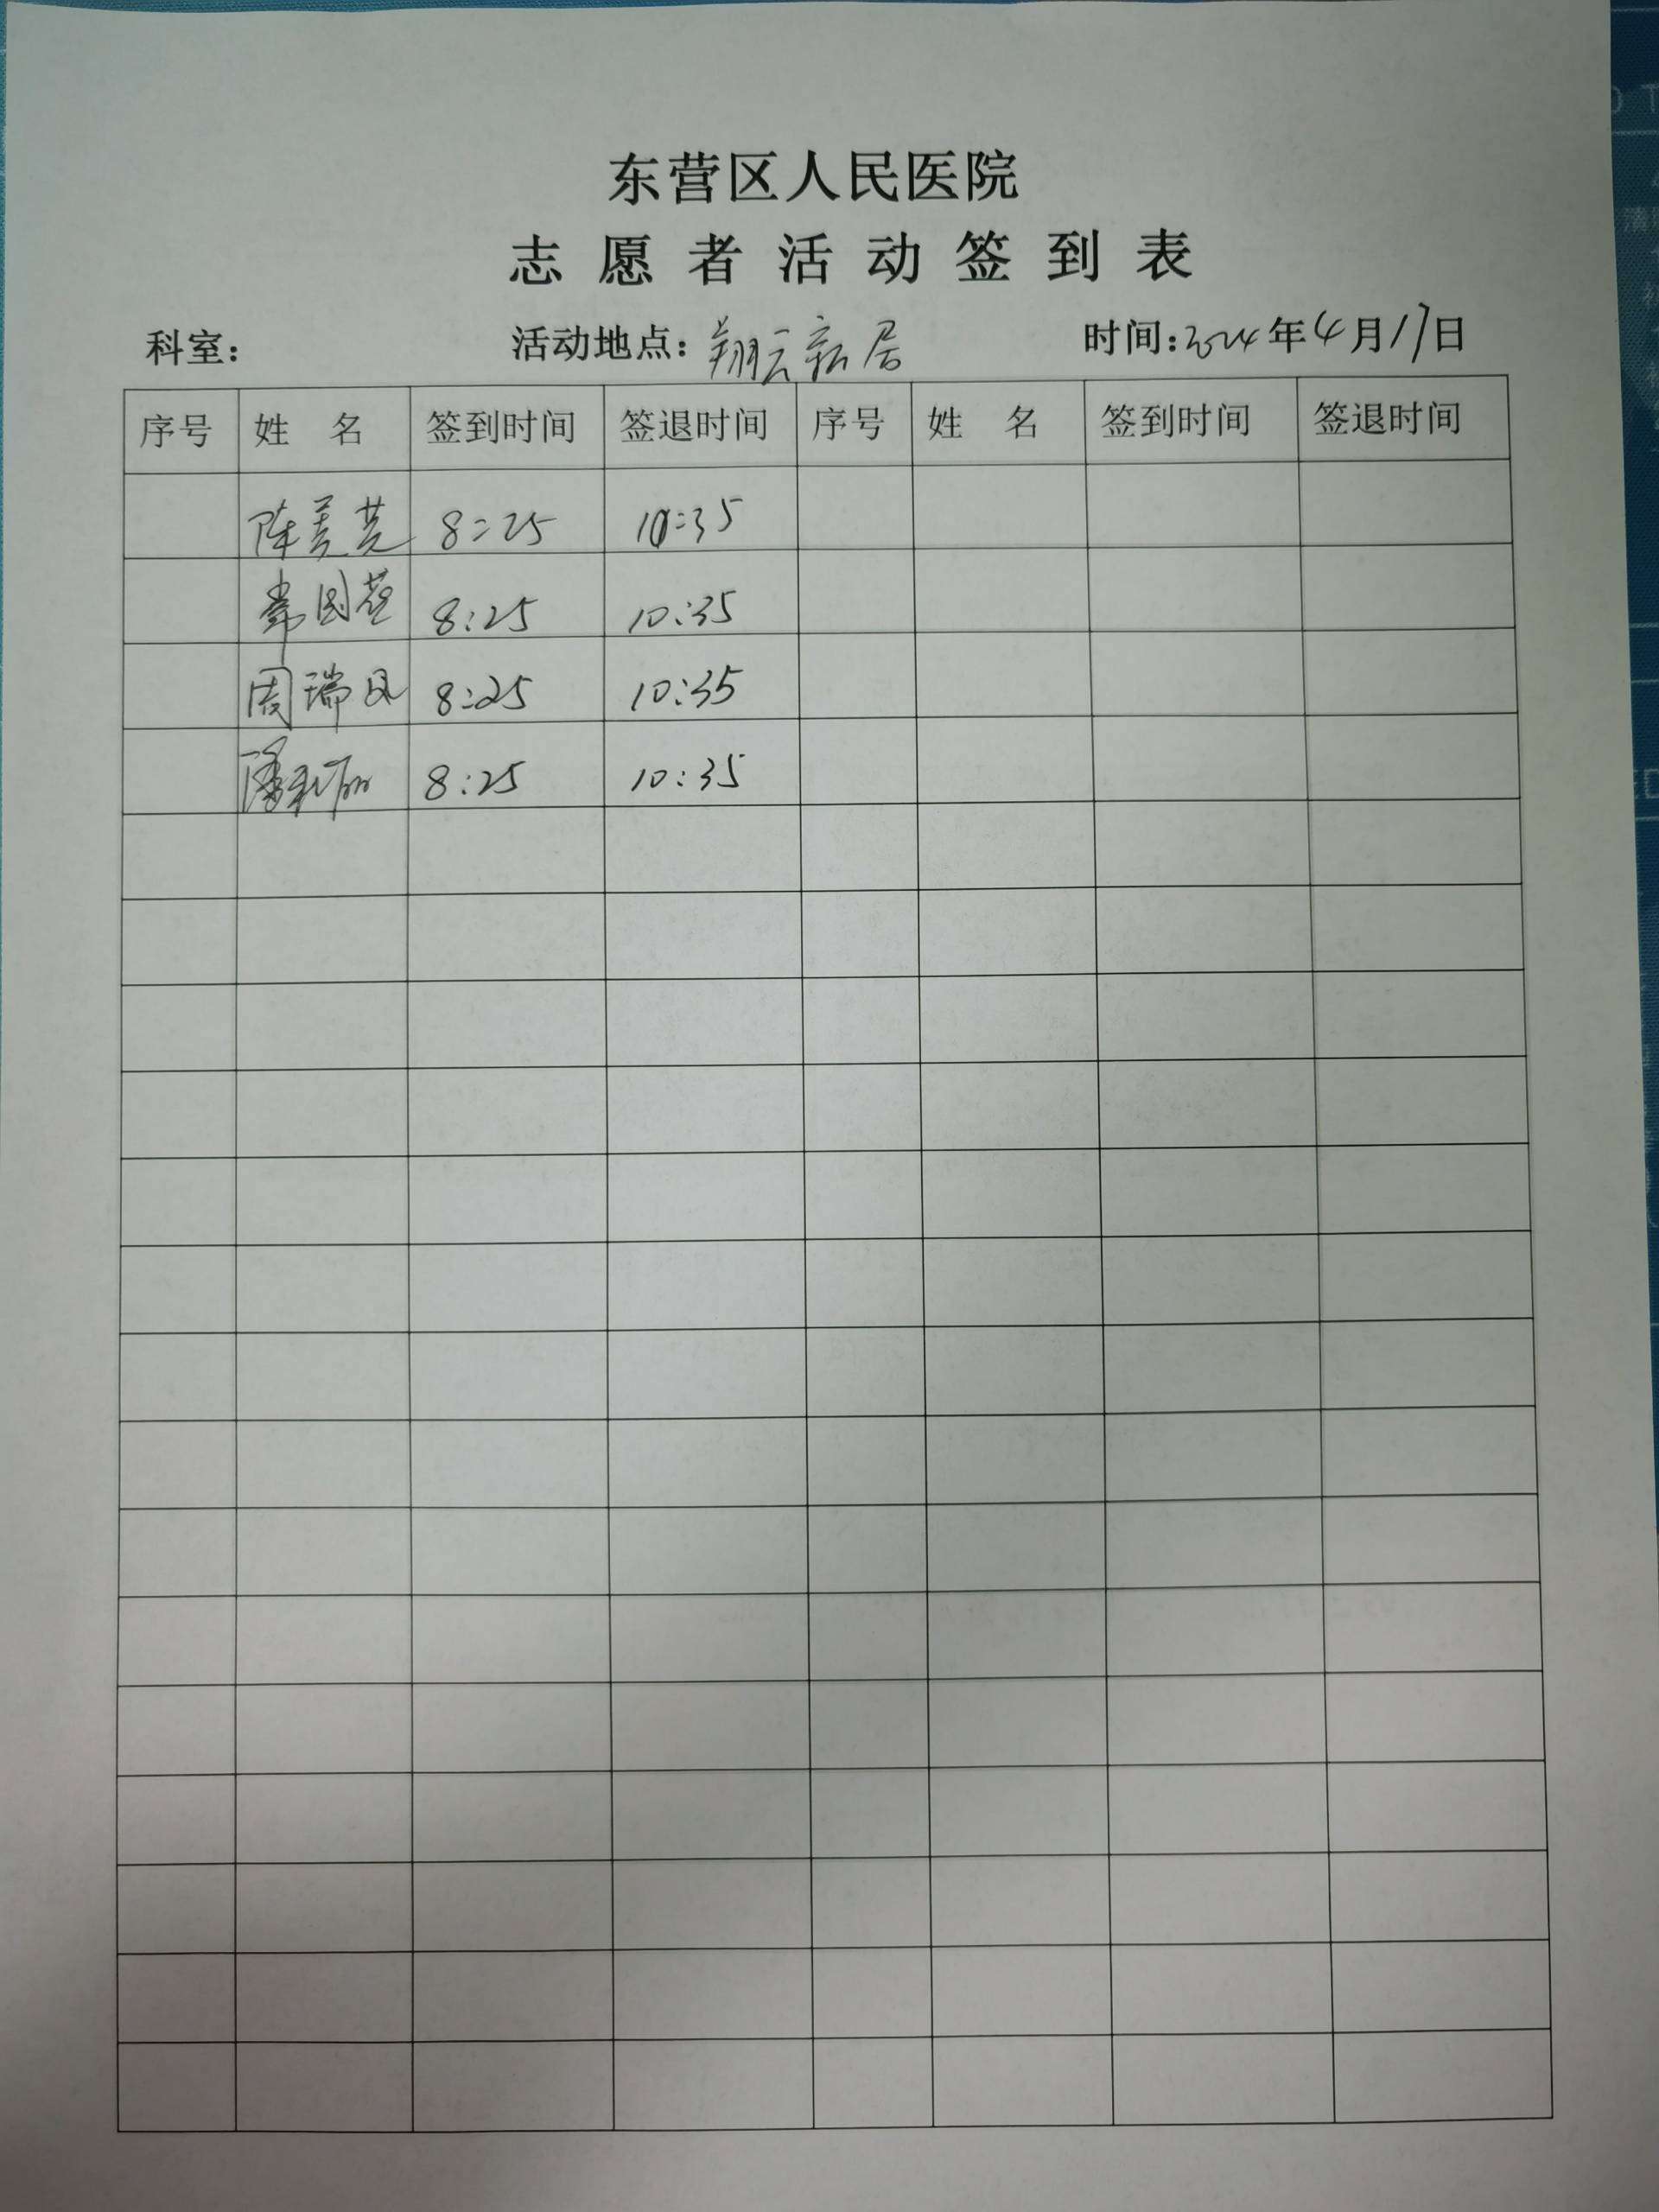 东营区人民医院
志愿者活动签到表
科室： 活动地点：翔云新居 时间：2024年4月17日
序号 姓 名 签到时间 签退时间 序号 姓 名 签到时间 签退时间
陈美芸 8:25 10:35
8:25 10:35
周瑞凤 8:25 10:35
潘利丽 8:25 10:35